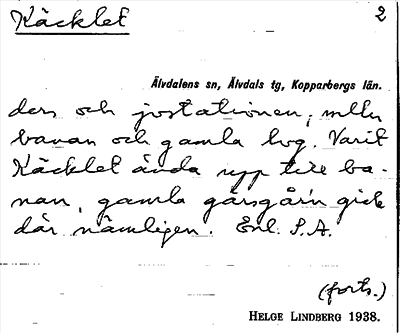 Käcklet 2
Älvdalens sn, Älvdals tg, Kopparbergs län.
den och jvstationen, mlln
banan och gamla lvg. Varit
Käcklet ända upp till ba-
nan, gamla gårsgår'n gick
där nämligen. Enl. S.A.
(forts.)
HELGE LINDBERG 1938.